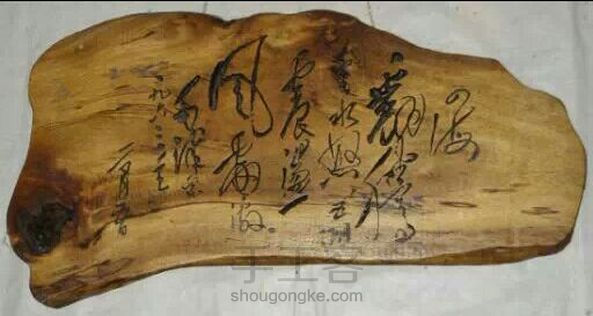 四海
翻騰
雲水怒五洲
震盪
風雷激
毛澤東
一九六三年
手工客
shougongke.com